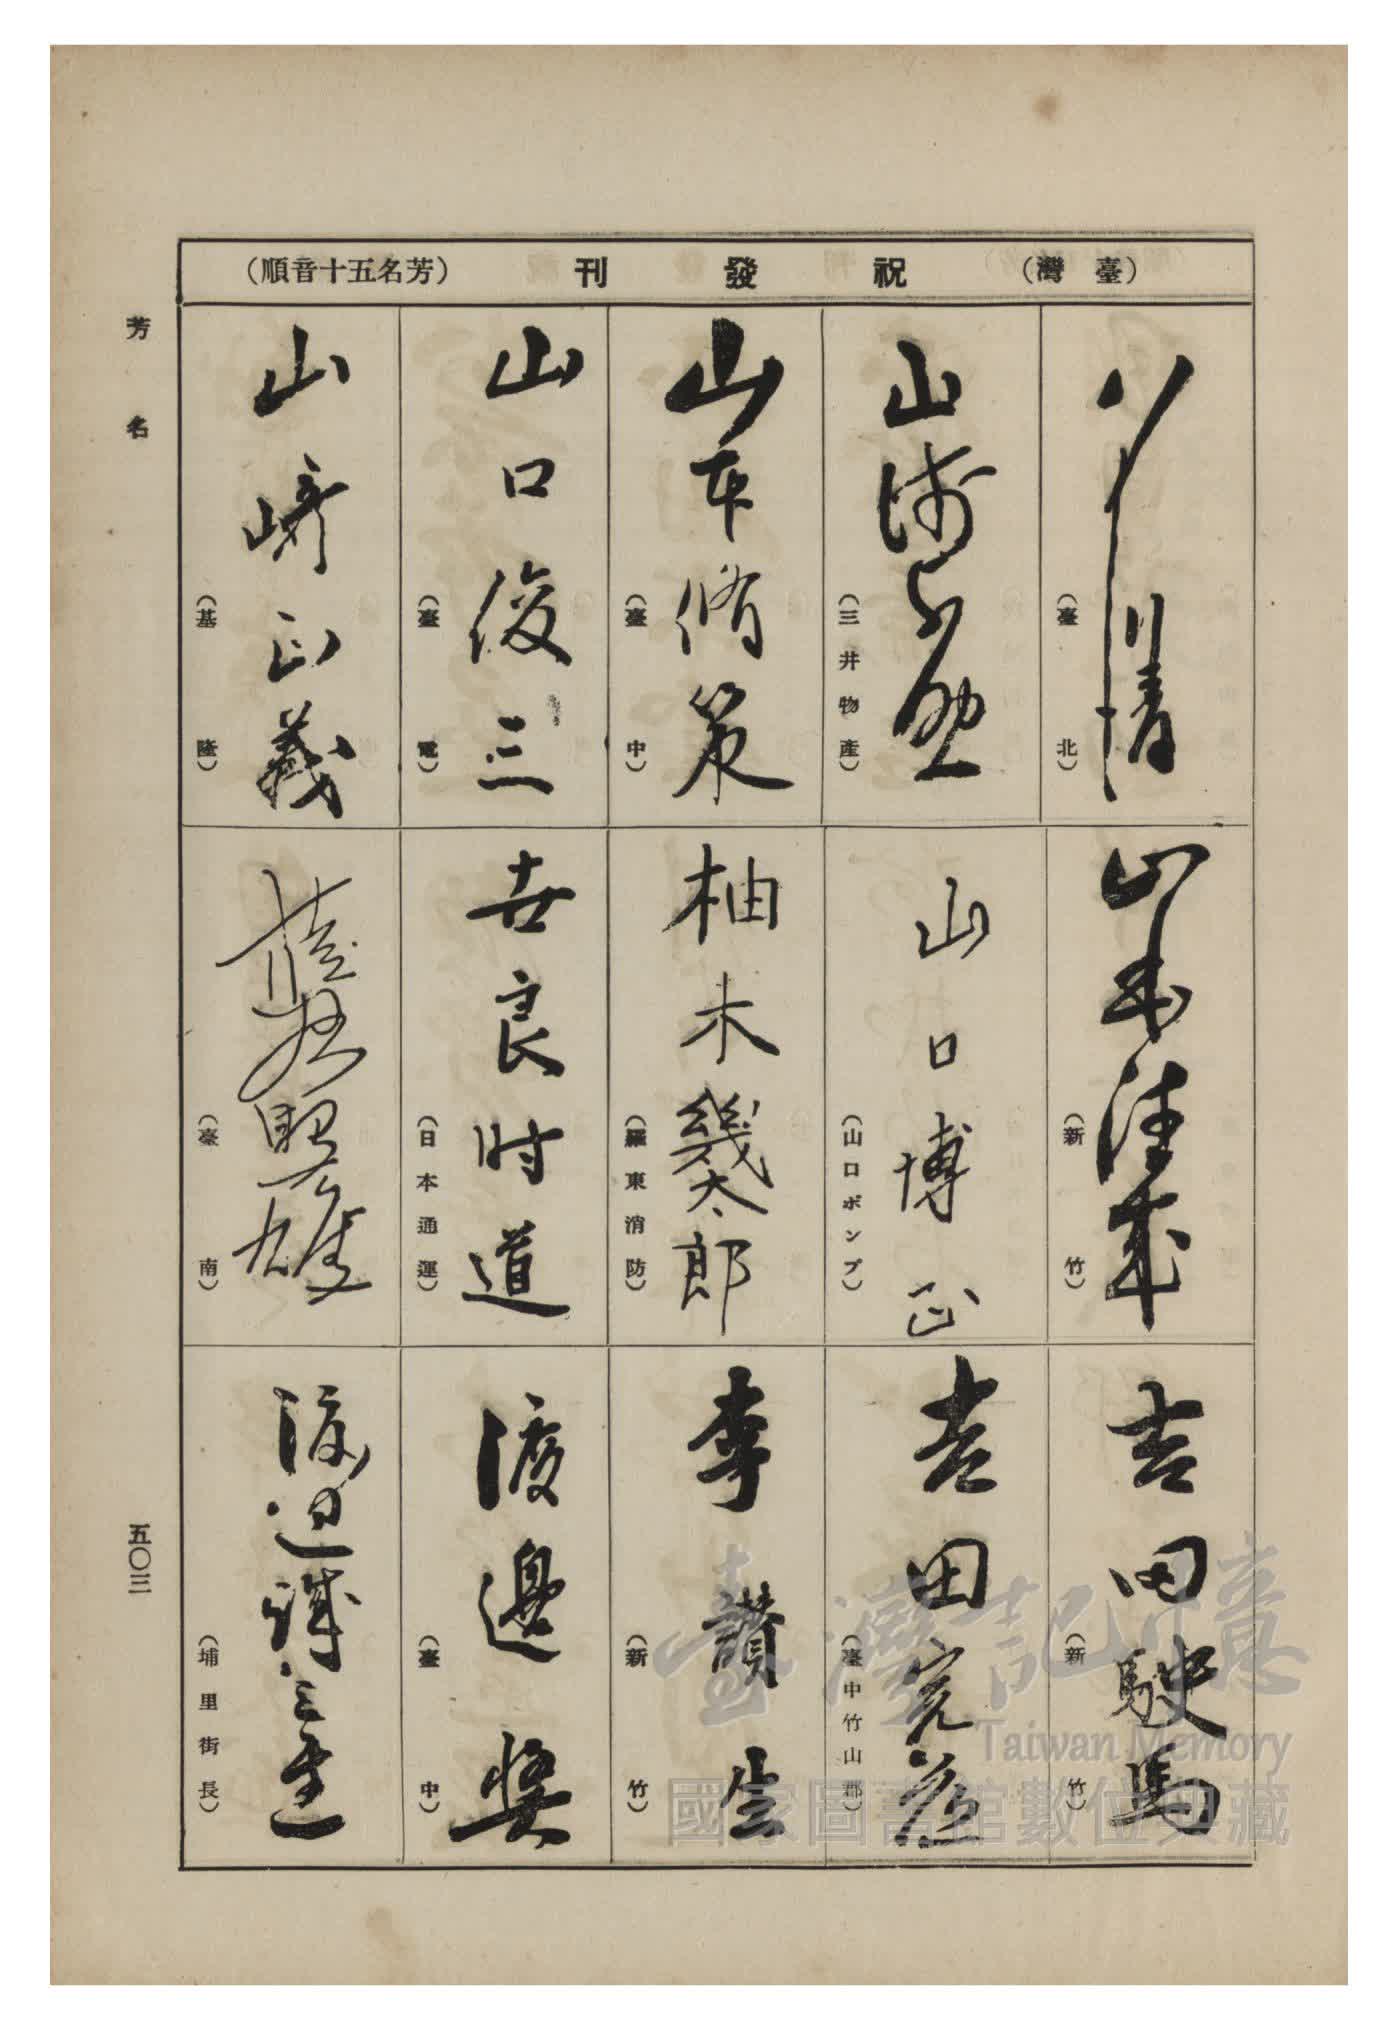 (臺灣) 祝發刊 (芳名五十音順)
(臺北)
山 (三井物產)
山本脩策 (臺中)
山口俊三 (臺電)
山崎正義 (基隆)
山本 (新竹)
山口博正 (山口ポンプ)
柚木幾太郎 (羅東消防)
吉良时道 (日本通運)
雄 (臺南)
吉田駛馬 (新竹)
吉田 (臺中竹山郡)
李讚生 (新竹)
渡邊奬 (臺中)
渡辺誠之進 (埔里街長)
芳名
五〇三
臺灣記憶
Taiwan Memory
國家圖書館數位典藏